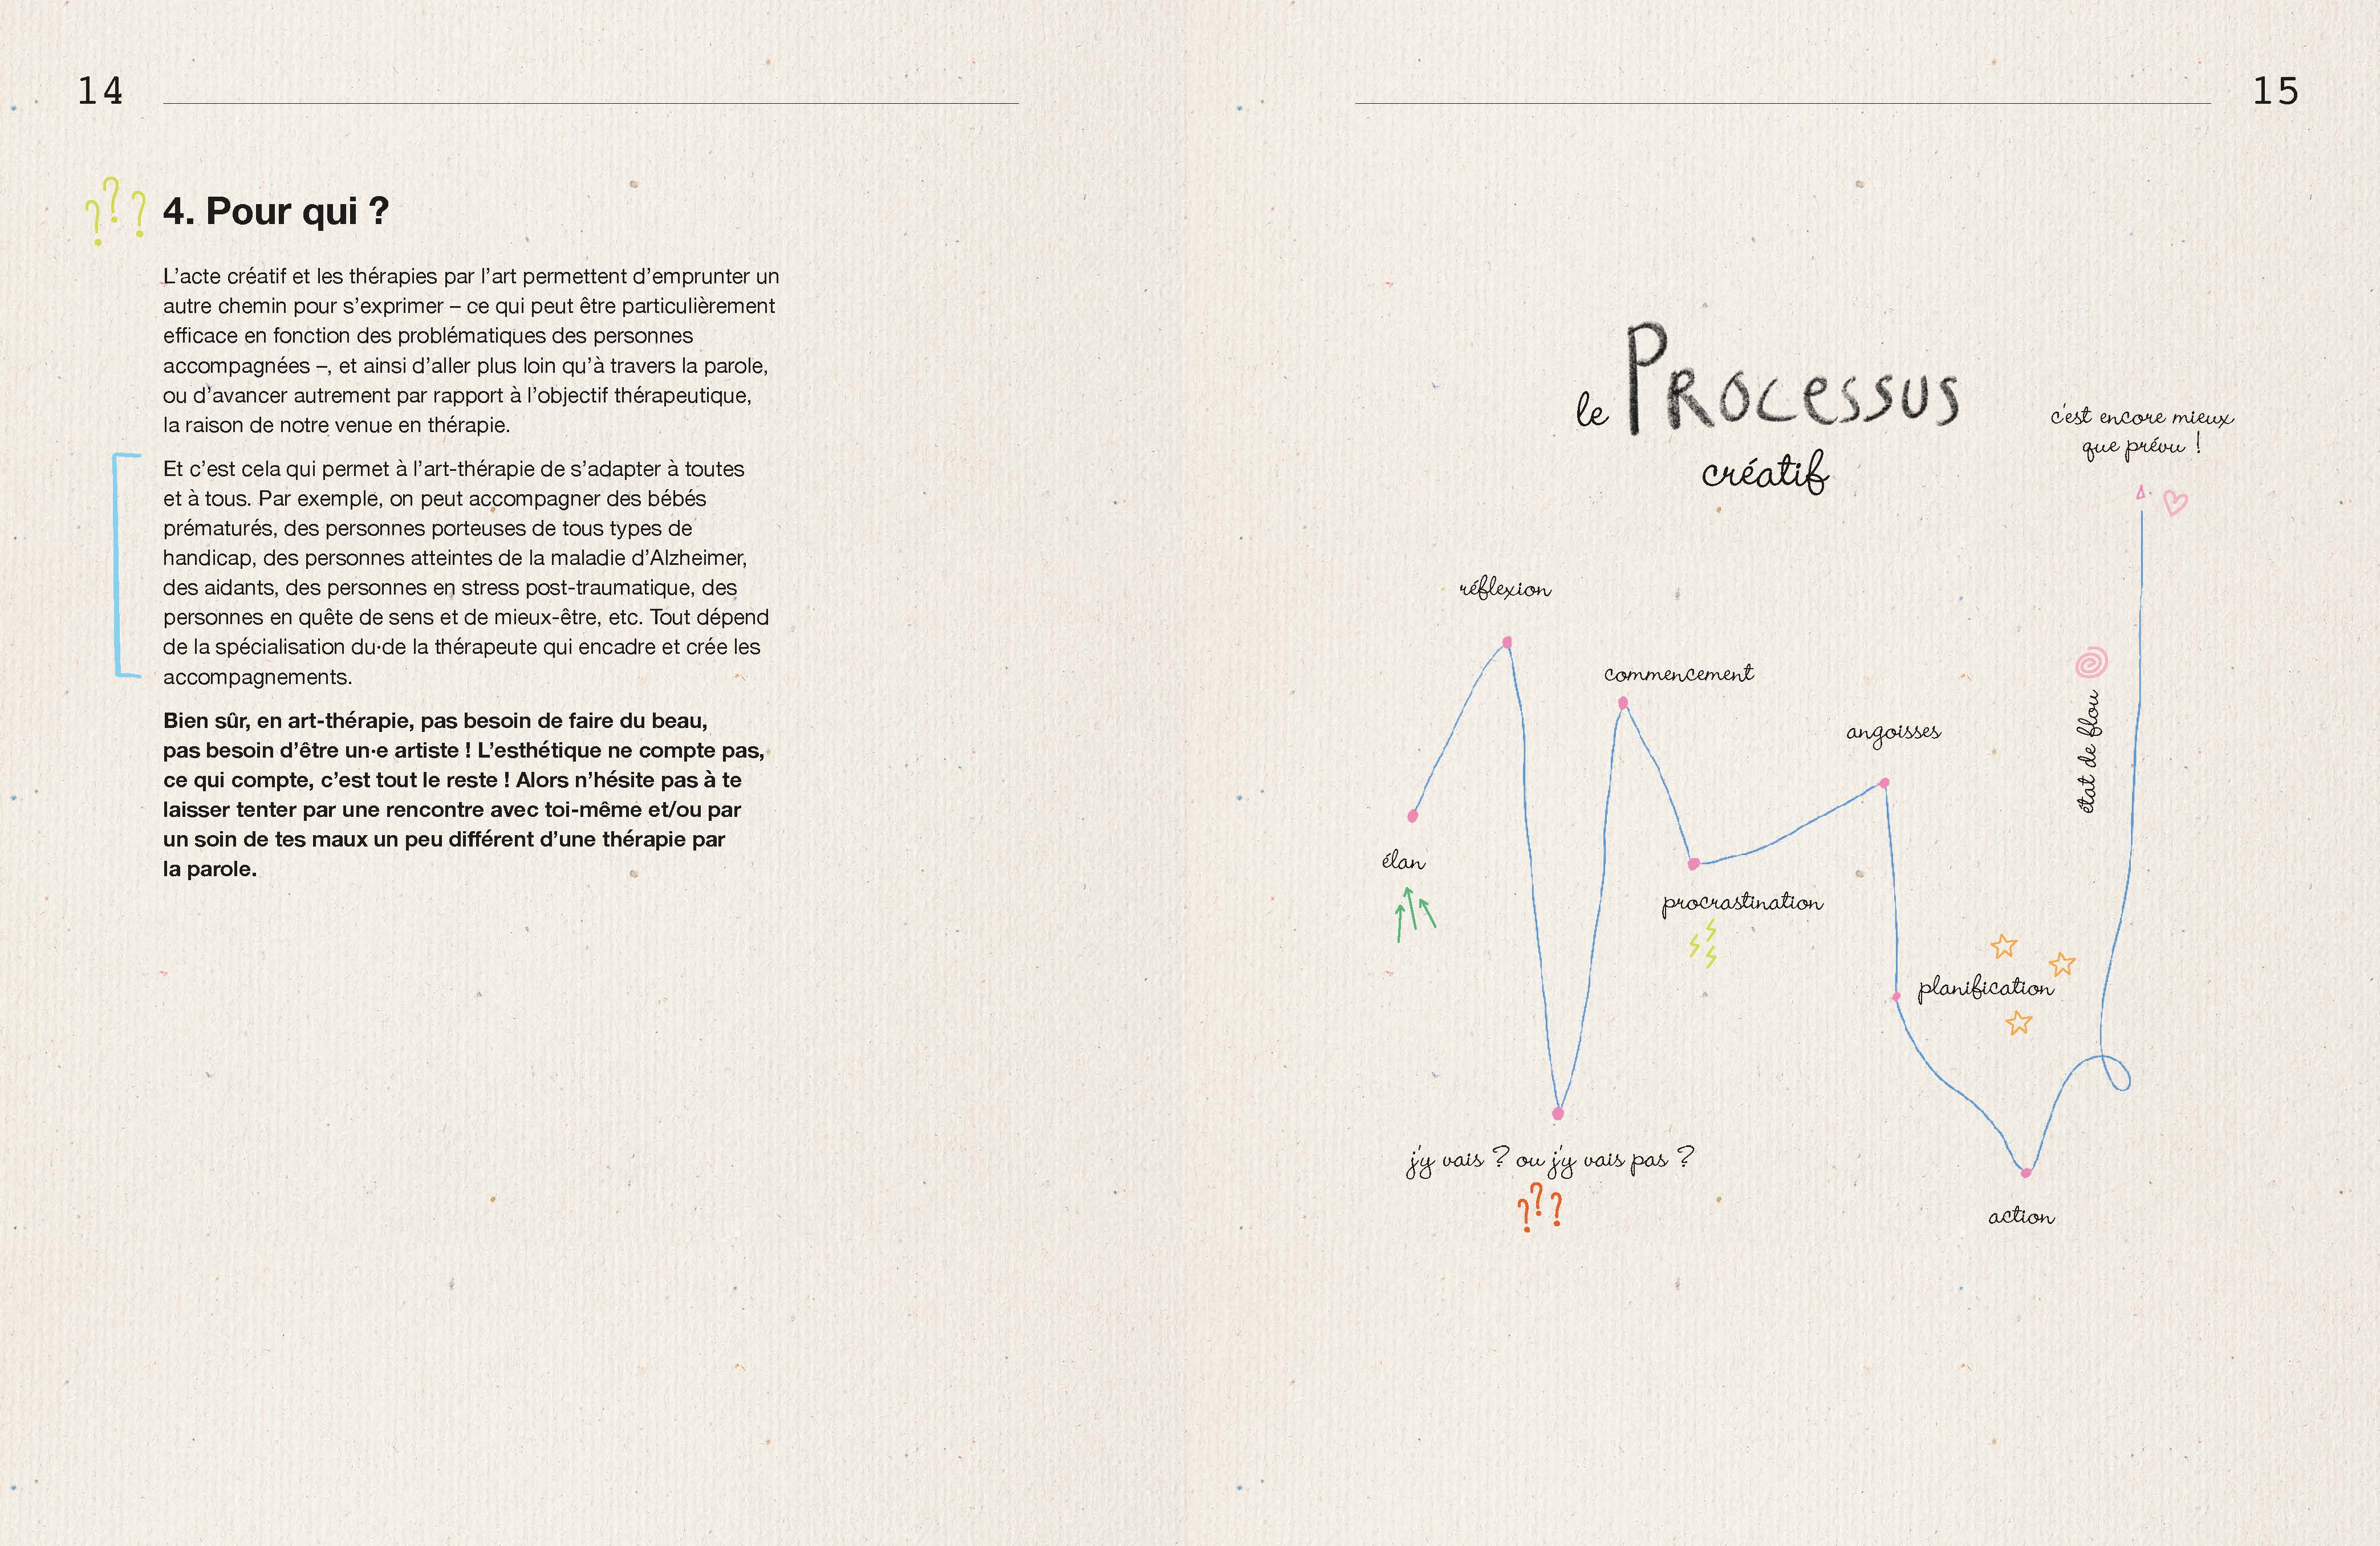 14
??? 4. Pour qui ?
L’acte créatif et les thérapies par l’art permettent d’emprunter un
autre chemin pour s’exprimer – ce qui peut être particulièrement
efficace en fonction des problématiques des personnes
accompagnées –, et ainsi d’aller plus loin qu’à travers la parole,
ou d’avancer autrement par rapport à l’objectif thérapeutique,
la raison de notre venue en thérapie.
Et c’est cela qui permet à l’art-thérapie de s’adapter à toutes
et à tous. Par exemple, on peut accompagner des bébés
prématurés, des personnes porteuses de tous types de
handicap, des personnes atteintes de la maladie d’Alzheimer,
des aidants, des personnes en stress post-traumatique, des
personnes en quête de sens et de mieux-être, etc. Tout dépend
de la spécialisation du·de la thérapeute qui encadre et crée les
accompagnements.
Bien sûr, en art-thérapie, pas besoin de faire du beau,
pas besoin d’être un·e artiste ! L’esthétique ne compte pas,
ce qui compte, c’est tout le reste ! Alors n’hésite pas à te
laisser tenter par une rencontre avec toi-même et/ou par
un soin de tes maux un peu différent d’une thérapie par
la parole.
15
le PRocessus
créatif
élan
réflexion
j'y vais ? ou j'y vais pas ?
???
commencement
procrastination
angoisses
planification
action
état de flou
c'est encore mieux
que prévu !